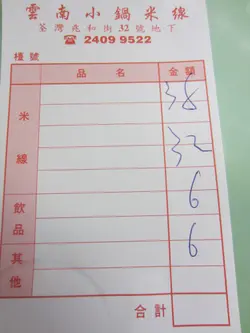 雲南小鍋米線
荃灣兆和街32號地下
☎ 2409 9522
檯號
品名 金額
38
米 32
線 6
飲品 6
其他
合計